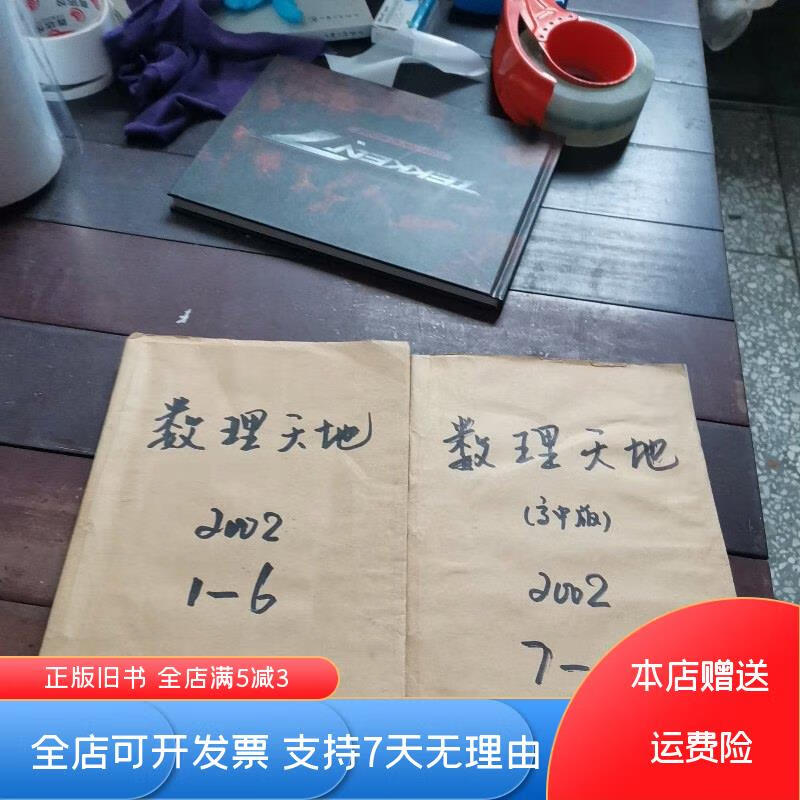 TEKKEN 7
数理天地
2002
1-6
数理天地
(高中版)
2002
7-
正版旧书 全店满5减3
全店可开发票 支持7天无理由
本店赠送
运费险